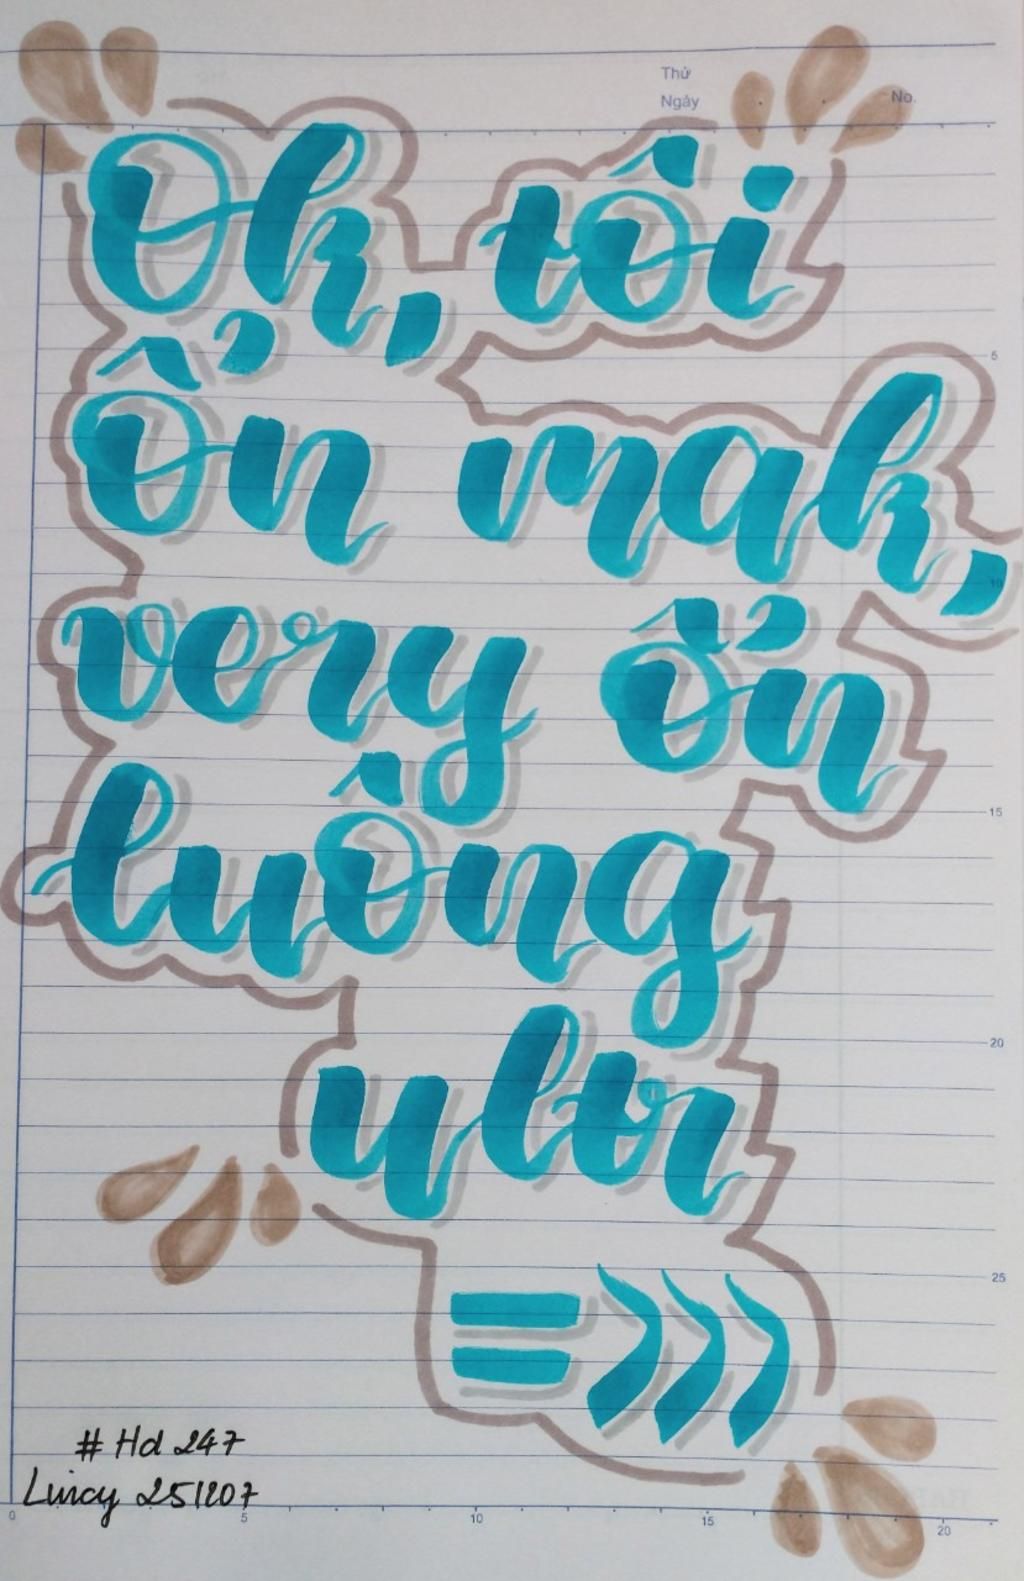 Thứ
Ngày
No.
Ok, tôi
ổn mak,
very ổn
luông
ultr
=)))
5
10
15
20
25
# Hd 247
251207
0 5 10 15 20